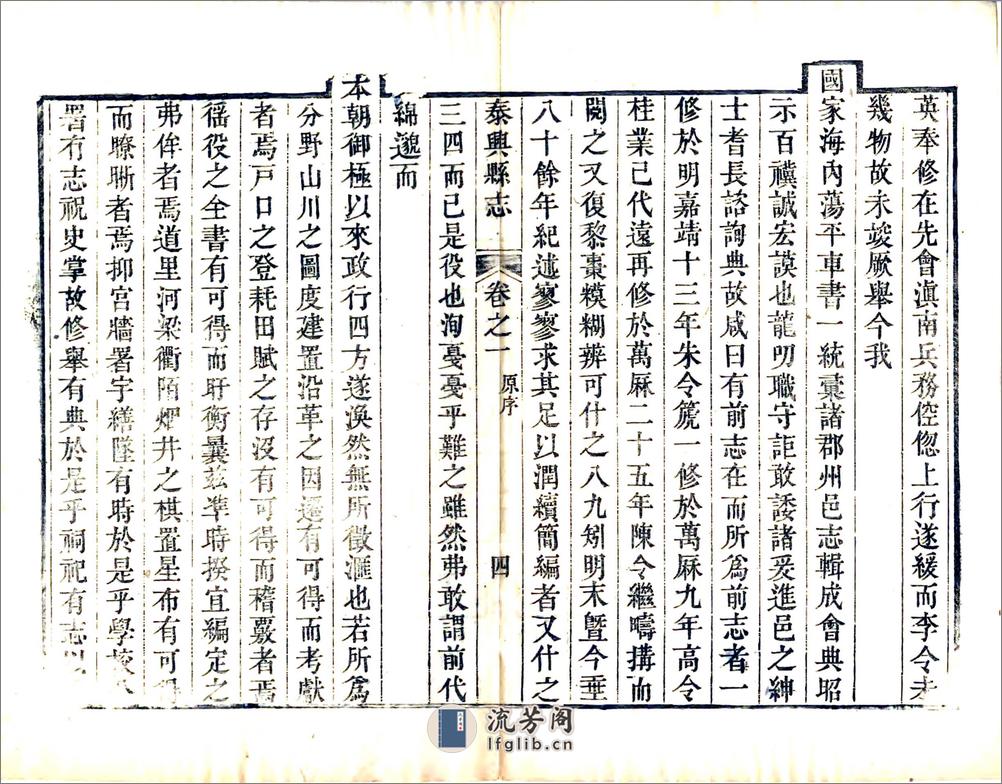 英奉修在先會滇南兵務倥偬上行遂緩而李令未
幾物故未竣厥舉今我
國家海內蕩平車書一統彙諸郡州邑志輯成會典昭
示百禩誠宏謨也龍叨職守詎敢諉諸爰進邑之紳
士耆長諮詢典故咸曰有前志在而所爲前志者一
修於明嘉靖十三年朱令篪一修於萬厤九年高令
桂業已代遠再修於萬厤二十五年陳令繼疇搆而
閱之又復黎棗糢糊辨可什之八九矧明末曁今垂
八十餘年紀述寥寥求其足以潤續簡編者又什之
泰興縣志 卷之一 原序 四
三四而已是役也洵戞戞乎難之雖然弗敢謂前代
綿邈而
本朝御極以來政行四方遂渙然無所徵滙也若所爲
分野山川之圖度建置沿革之因遷有可得而考獻
者焉戸口之登耗田賦之存沒有可得而稽覈者焉
徭役之全書有可得而盱衡曩玆準時揆宜編定之
弗侔者焉道里河梁衢陌煙井之棋置星布有可得
而瞭晰者焉抑宮牆署宇繕墜有時於是乎學校
署有志祝史掌故修舉有典於是乎祠祀有志以
流芳阁
lfglib.cn